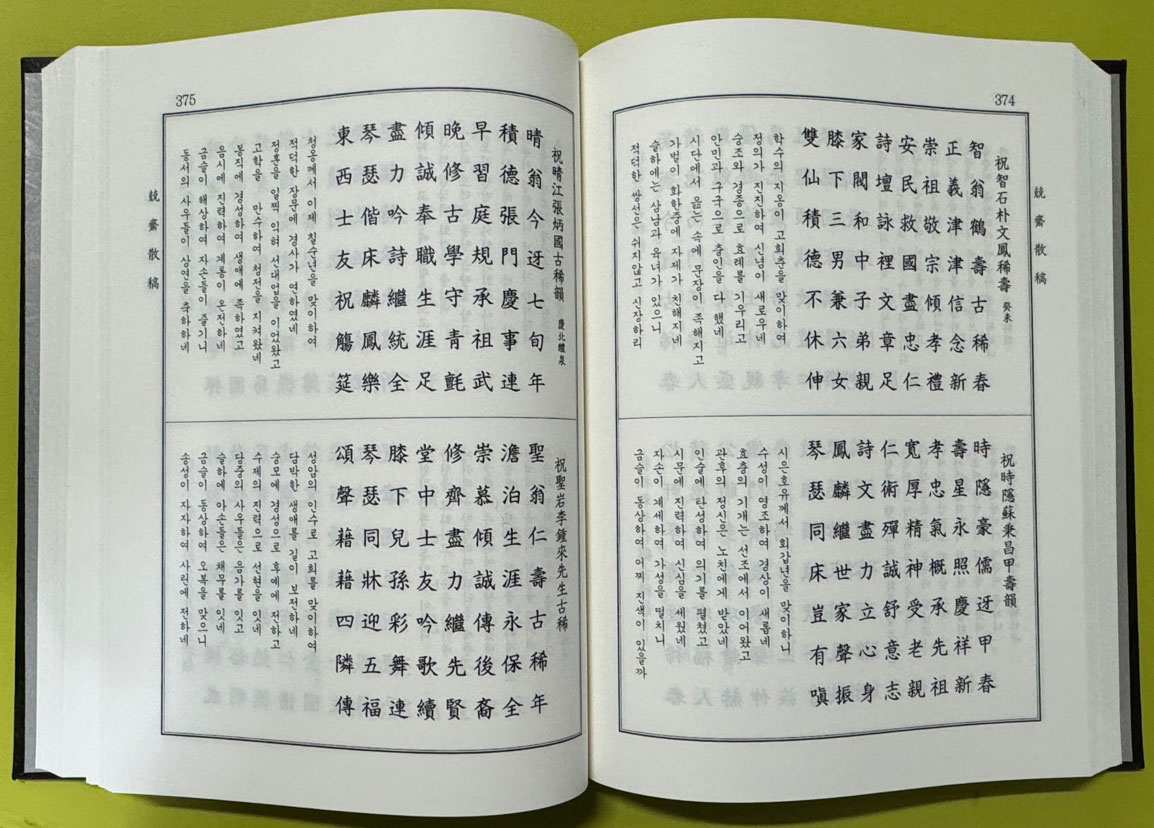 374
兢齋散稿
祝智石朴文鳳稀壽 癸未
智翁鶴壽古稀春
正義津津信念新
崇祖敬宗傾孝禮
安民救國盡忠仁
詩壇詠裡文章足
家閥和中子弟親
膝下三男兼六女
雙仙積德不休伸
학수의 지옹이 고희춘을 맞이하여
정의가 진진하여 신념이 새로우네
숭조와 경종으로 효례를 기우리고
안민과 구국으로 충인을 다 했네
시단에서 읊는 속에 문장이 족해지고
가벌이 화한중에 자제가 친해지네
슬하에는 삼남과 육녀가 있으니
적덕한 쌍선은 쉬지않고 신장하리
祝時隱蘇秉昌甲壽韻
時隱豪儒迓甲春
壽星永照慶祥新
孝忠氣概承先祖
寬厚精神受老親
仁術殫誠舒意志
詩文盡力立心身
鳳麟繼世家聲振
琴瑟同床豈有嗔
시은호유께서 회갑년을 맞이하니
수성이 영조하여 경상이 새롭네
효충의 기개는 선조에서 이어왔고
관후의 정신은 노친에게 받았네
인술에 탄성하여 의기를 펼쳤고
시문에 진력하여 신심을 세웠네
자손이 계세하여 가성을 떨치니
금슬이 동상하여 어찌 진색이 있을까
375
兢齋散稿
祝晴江張炳國古稀韻 慶北醴泉
晴翁今迓七旬年
積德張門慶事連
早習庭規承祖武
晚修古學守靑氈
傾誠奉職生涯足
盡力吟詩繼統全
琴瑟偕床麟鳳樂
東西士友祝觴筵
청옹께서 이제 칠순년을 맞이하여
적덕한 장문에 경사가 연하였네
정훈을 일찍 익혀 선대업을 이었왔고
고학을 만수하여 청전을 지켜왔네
봉직에 경성하여 생애에 족하였고
음시에 진력하여 계통이 온전하네
금슬이 해상하여 자손들이 즐기니
동서의 사우들이 상연을 축하하네
祝聖岩李鍾來先生古稀
聖翁仁壽古稀年
澹泊生涯永保全
崇慕傾誠傳後裔
修齊盡力繼先賢
堂中士友吟歌續
膝下兒孫彩舞連
琴瑟同牀迎五福
頌聲藉藉四隣傳
성암의 인수로 고희를 맞이하여
담박한 생애를 길이 보전하네
숭모에 경성으로 후예에 전하고
수제의 진력으로 선현을 잇네
당중의 사우들은 음가를 잇고
슬하에 아손들은 채무를 잇네
금슬이 동상하여 오복을 맞으니
송성이 자자하여 사린에 전하네